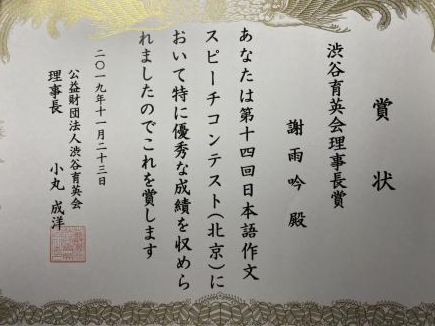 賞状
渋谷育英会理事長賞
謝雨吟殿
あなたは第十四回日本語作文
スピーチコンテスト(北京)に
おいて特に優秀な成績を収めら
れましたのでこれを賞します
二〇一九年十一月二十三日
公益財団法人渋谷育英会
理事長 小丸成洋